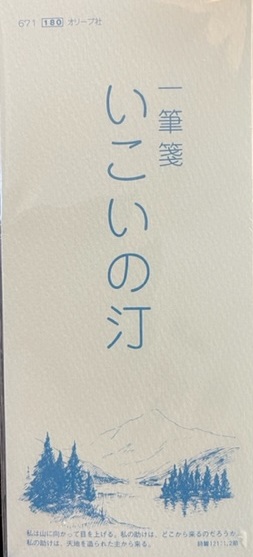 671 180 オリーブ社
一筆箋
いこいの汀
私は山に向かって目を上げる。私の助けは、どこから来るのだろうか。
私の助けは、天地を造られた主から来る。 詩篇121:1,2節